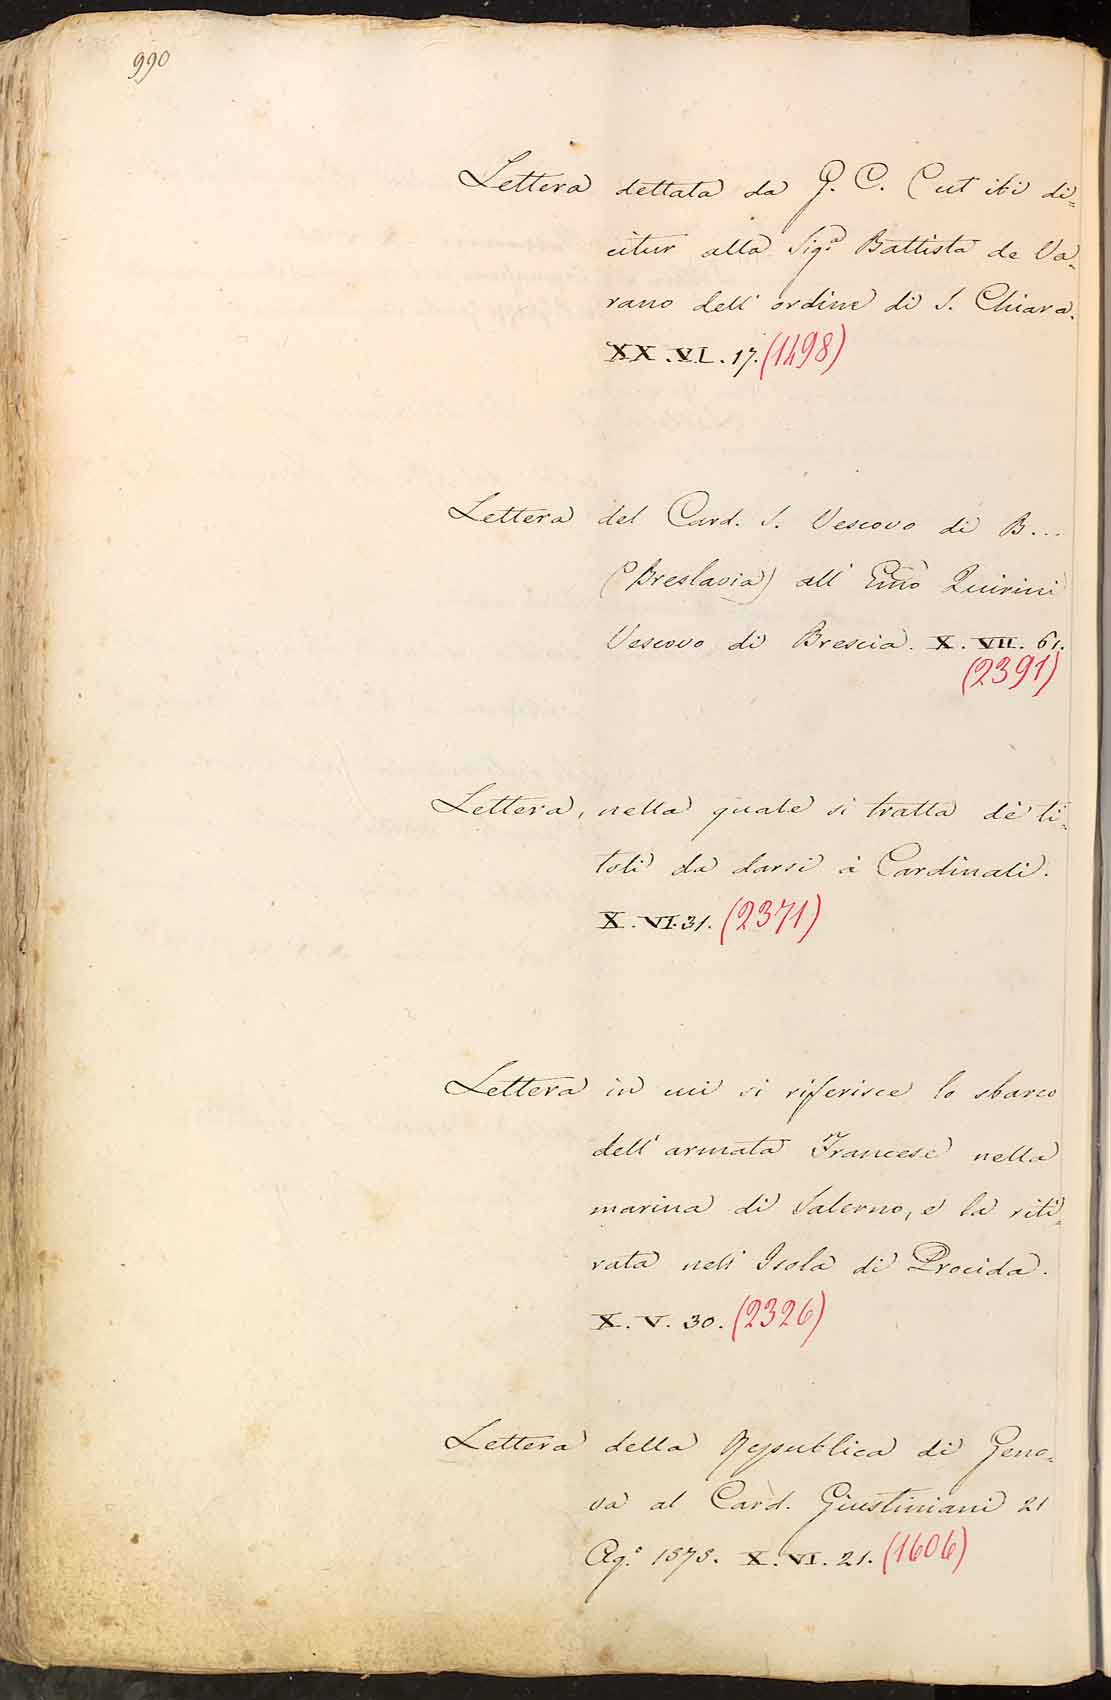 990
Lettera dettata da G. C. (ut ibi di=
citur alla Sig.ª Battista de Va=
rano dell' ordine di S. Chiara.
XX. VI. 17. (1498)
Lettera del Card. S. Vescovo di B...
(Breslavia) all' Emõ Quirini
Vescovo di Brescia. X. VII. 61.
(2391)
Lettera, nella quale si tratta de' ti=
toli da darsi a' Cardinali.
X. VI. 31. (2371)
Lettera in cui si riferisce lo sbarco
dell' armata Francese nella
marina di Salerno, e la riti=
rata nell' Isola di Procida.
X. V. 30. (2326)
Lettera della Repubblica di Geno=
va al Card. Giustiniani 21
Ag.º 1575. X. VI. 21. (1606)